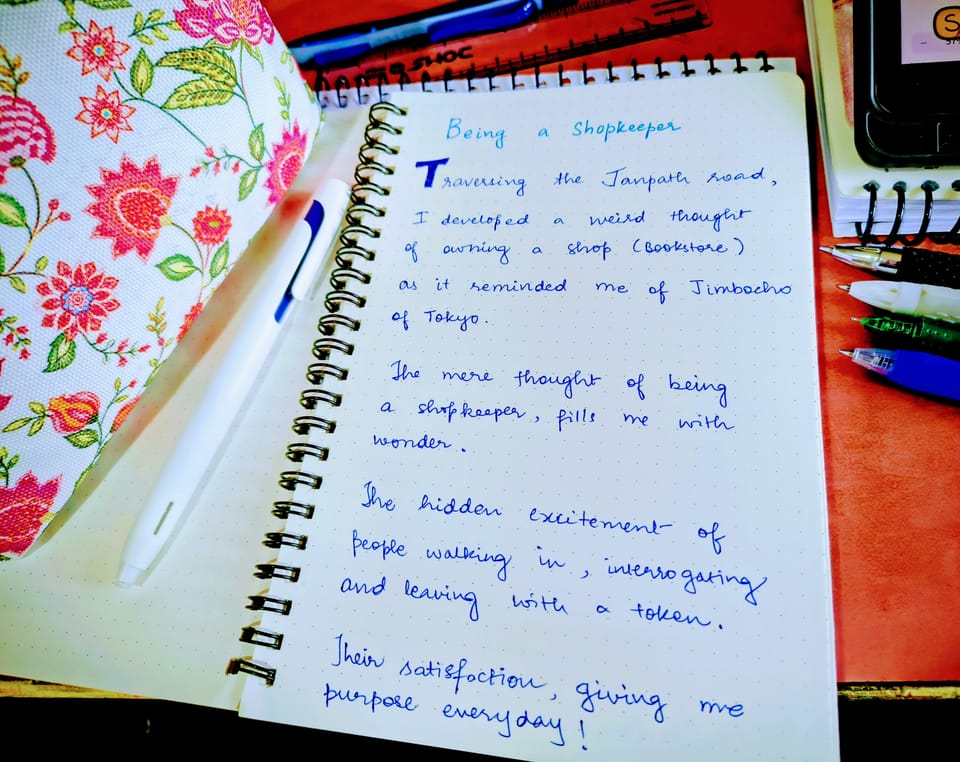 Being a Shopkeeper
Traversing the Janpath road,
I developed a weird thought
of owning a shop (Bookstore)
as it reminded me of Jimbocho
of Tokyo.
The mere thought of being
a shopkeeper, fills me with
wonder.
The hidden excitement of
people walking in, interrogating
and leaving with a token.
Their satisfaction, giving me
purpose everyday!